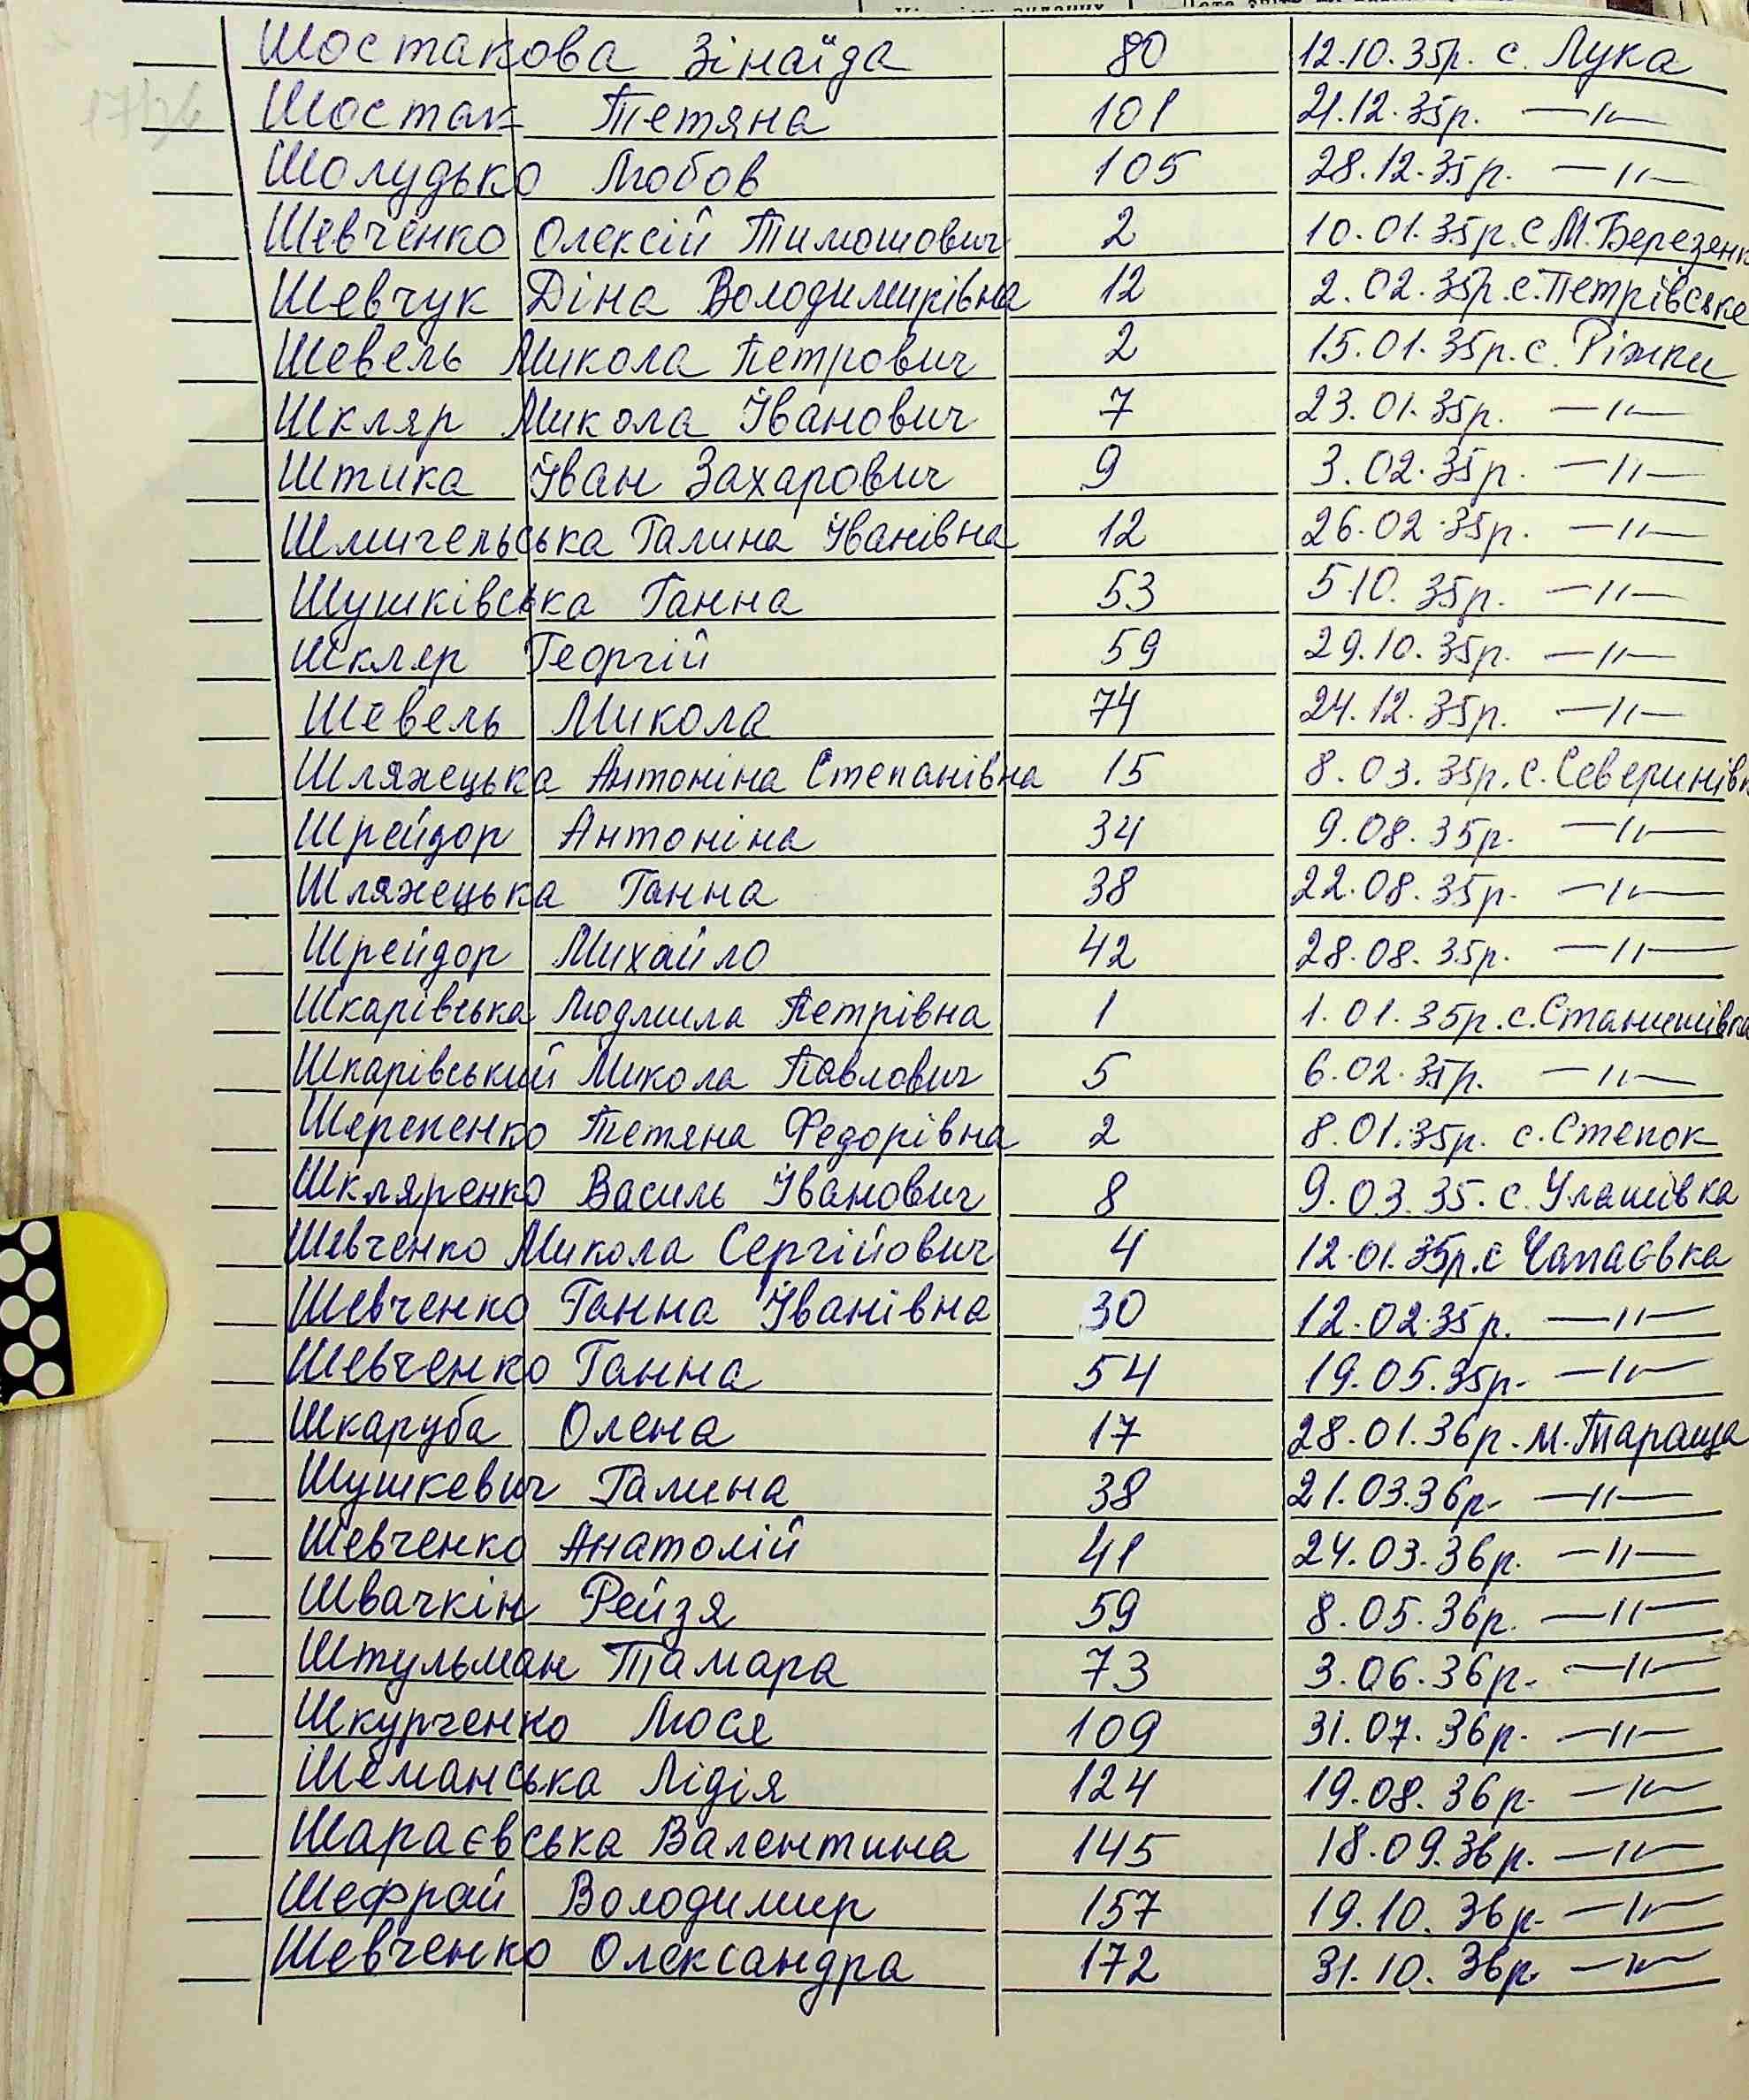 Шостакова Зінаїда 80 12.10.35р. с. Лука
Шостак Тетяна 101 21.12.35р. —"—
Шолудько Любов 105 28.12.35р. —"—
Шевченко Олексій Тимошович 2 10.01.35р. с М.Березянк
Шевчук Діна Володимирівна 12 2.02.35р. с.Петрівське
Шевель Микола Петрович 2 15.01.35р. с. Ріжки
Шкляр Микола Іванович 7 23.01.35р. —"—
Штика Іван Захарович 9 3.02.35р. —"—
Шмигельська Галина Іванівна 12 26.02.35р. —"—
Шушківська Ганна 53 5.10.35р. —"—
Шкляр Георгій 59 29.10.35р. —"—
Шевель Микола 74 24.12.35р. —"—
Шляхецька Антоніна Степанівна 15 8.03.35р. с. Северинівк
Шрейдор Антоніна 34 9.08.35р. —"—
Шляхецька Ганна 38 22.08.35р. —"—
Шрейдор Михайло 42 28.08.35р. —"—
Шкарівська Людмила Петрівна 1 1.01.35р. с.Станишівка
Шкарівський Микола Павлович 5 6.02.35р. —"—
Шерепенко Тетяна Федорівна 2 8.01.35р. с. Степок
Шкляренко Василь Іванович 8 9.03.35. с. Улашівка
Шевченко Микола Сергійович 4 12.01.35р. с Чапаєвка
Шевченко Ганна Іванівна 30 12.02.35р. —"—
Шевченко Ганна 54 19.05.35р. —"—
Шкаруба Олена 17 28.01.36р. м.Тараща
Шушкевич Галина 38 21.03.36р. —"—
Шевченко Анатолій 41 24.03.36р. —"—
Швачкін Рейзя 59 8.05.36р. —"—
Штульман Тамара 73 3.06.36р. —"—
Шкурченко Люся 109 31.07.36р. —"—
Шеманська Лідія 124 19.08.36р. —"—
Шараєвська Валентина 145 18.09.36р. —"—
Шефрай Володимир 157 19.10.36р. —"—
Шевченко Олександра 172 31.10.36р. —"—